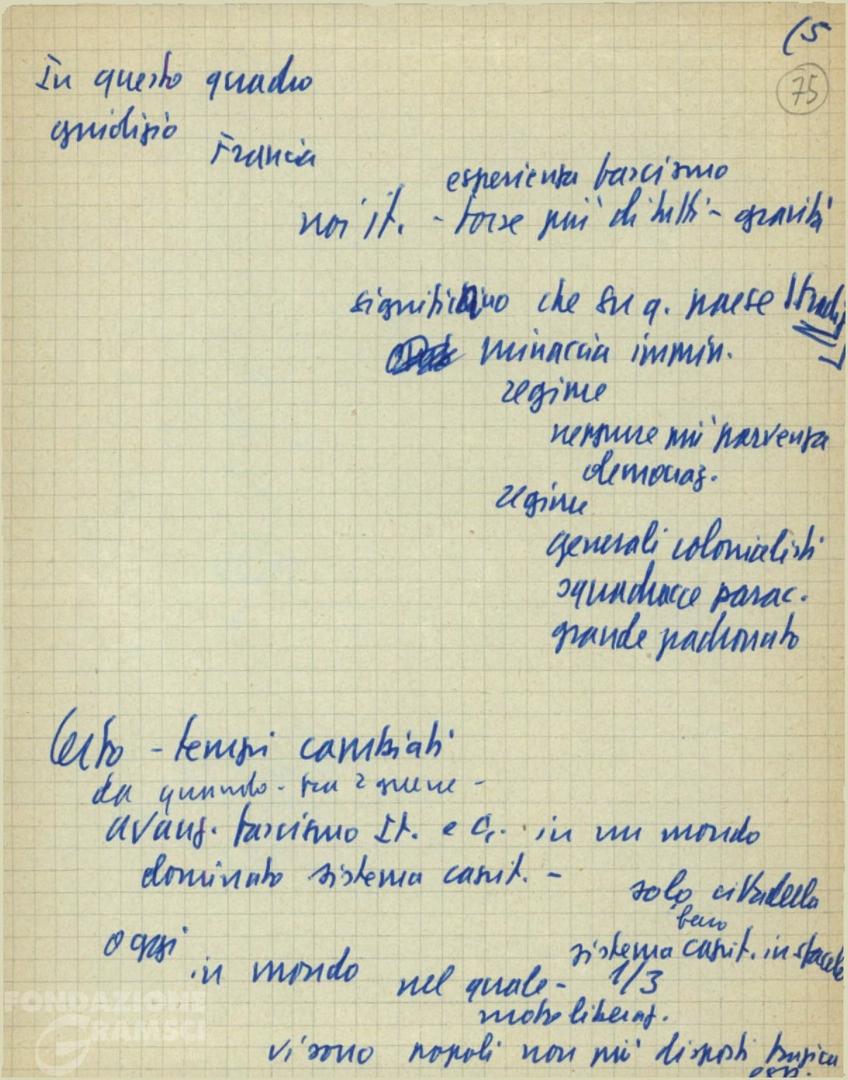 (5
75
In questo quadro
giudizio
Francia
esperienza fascismo
noi it. - forse più di tutti - gravità
significhino che su q. paese
minaccia immin.
regime
neppure più parvenza
democraz.
regime
generali colonialisti
squadracce parac.
grande padronato
Certo - tempi cambiati
da quando - fra 2 guerre -
avanz. fascismo It. e G. in un mondo
dominato sistema capit. -
solo cittadella
oggi
sistema capit. in sfacelo
in mondo
nel quale - 1/3
moto liberaz.
vi sono popoli non più disposti
FONDAZIONE
GRAMSCI